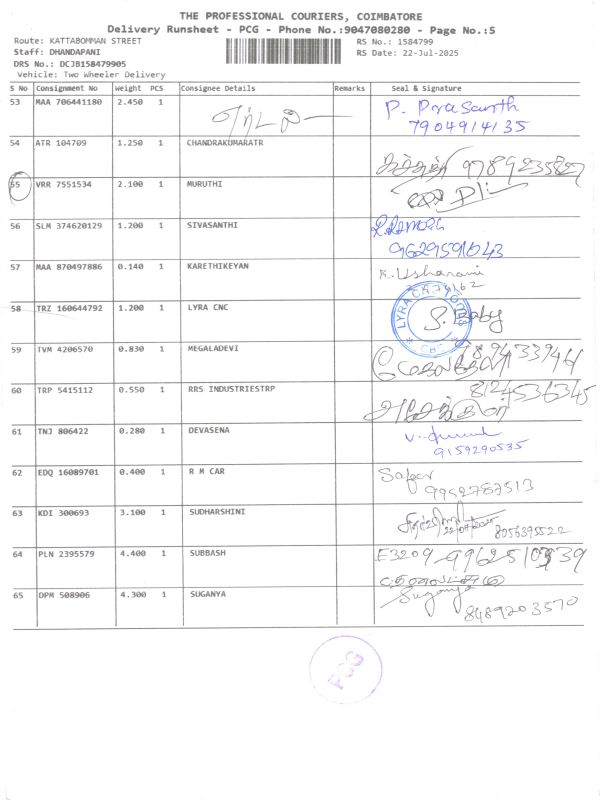 THE PROFESSIONAL COURIERS, COIMBATORE
Delivery Runsheet - PCG - Phone No.:9047080280 - Page No.:5
Route: KATTABOMMAN STREET RS No.: 1584799
Staff: DHANDAPANI RS Date: 22-Jul-2025
DRS No.: DCJB158479905
Vehicle: Two Wheeler Delivery
S No Consignment No Weight PCS Consignee Details Remarks Seal & Signature
53 MAA 706441180 2.450 1 P. Prasanth
7904914135
54 ATR 104709 1.250 1 CHANDRAKUMARATR
9789235827
55 VRR 7551534 2.100 1 MURUTHI
56 SLM 374620129 1.200 1 SIVASANTHI
9629591043
57 MAA 870497886 0.140 1 KARETHIKEYAN K. Usharani
58 TRZ 160644792 1.200 1 LYRA CNC LYRA CNC
S. Baby
59 TVM 4206570 0.830 1 MEGALADEVI
60 TRP 5415112 0.550 1 RRS INDUSTRIESTRP 8124536345
61 TNJ 806422 0.280 1 DEVASENA
9159290535
62 EDQ 16089701 0.400 1 R M CAR
9952787513
63 KDI 300693 3.100 1 SUDHARSHINI
8056395522
64 PLN 2395579 4.400 1 SUBBASH E3209
65 DPM 508906 4.300 1 SUGANYA Suganya
8489203570
PCG